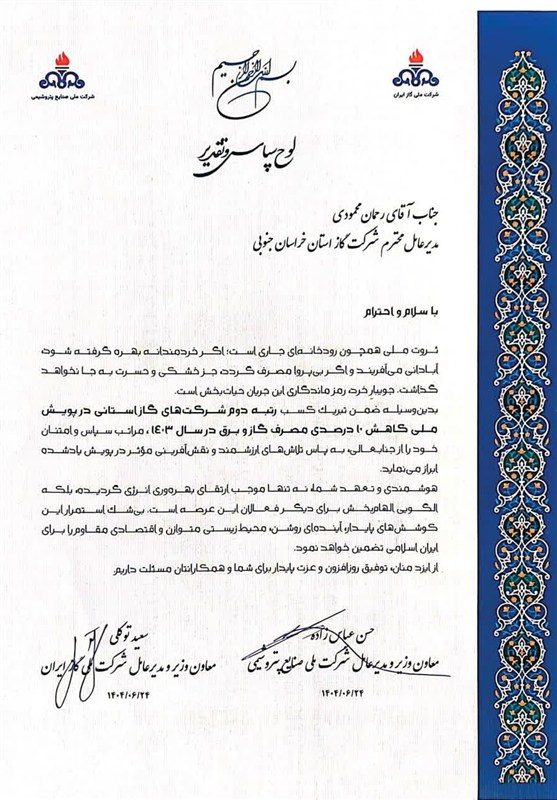 بسم الله الرحمن الرحیم
شرکت ملی گاز ایران
شرکت ملی صنایع پتروشیمی
لوح سپاس و تقدیر
جناب آقای رحمان محمودی
مدیرعامل محترم شرکت گاز استان خراسان جنوبی
با سلام و احترام
ثروت ملی همچون رودخانه‌ای جاری است؛ اگر خردمندانه بهره گرفته شود،
آبادانی می‌آفریند و اگر بی‌پروا مصرف گردد، جز خشکی و حسرت به جا نخواهد
گذاشت. جویبار خرد، رمز ماندگاری این جریان حیات‌بخش است.
بدین‌وسیله ضمن تبریک کسب رتبه دوم شرکت‌های گاز استانی در پویش
ملی کاهش ۱۰ درصدی مصرف گاز و برق در سال ۱۴۰۳، مراتب سپاس و امتنان
خود را از جنابعالی، به پاس تلاش‌های ارزشمند و نقش‌آفرینی مؤثر در پویش یادشده
ابراز می‌نماید.
هوشمندی و تعهد شما، نه تنها موجب ارتقای بهره‌وری انرژی گردیده، بلکه
الگویی الهام‌بخش برای دیگر فعالان این عرصه است. بی‌شک استمرار این
کوشش‌های پایدار، آینده‌ای روشن، محیط‌زیستی متوازن و اقتصادی مقاوم را برای
ایران اسلامی تضمین خواهد نمود.
از ایزد منان، توفیق روزافزون و عزت پایدار برای شما و همکارانتان مسئلت داریم.
حسن عباس زاده
معاون وزیر و مدیرعامل شرکت ملی صنایع پتروشیمی
۱۴۰۴/۰۶/۲۴
سعید توکلی
معاون وزیر و مدیرعامل شرکت ملی گاز ایران
۱۴۰۴/۰۶/۲۴